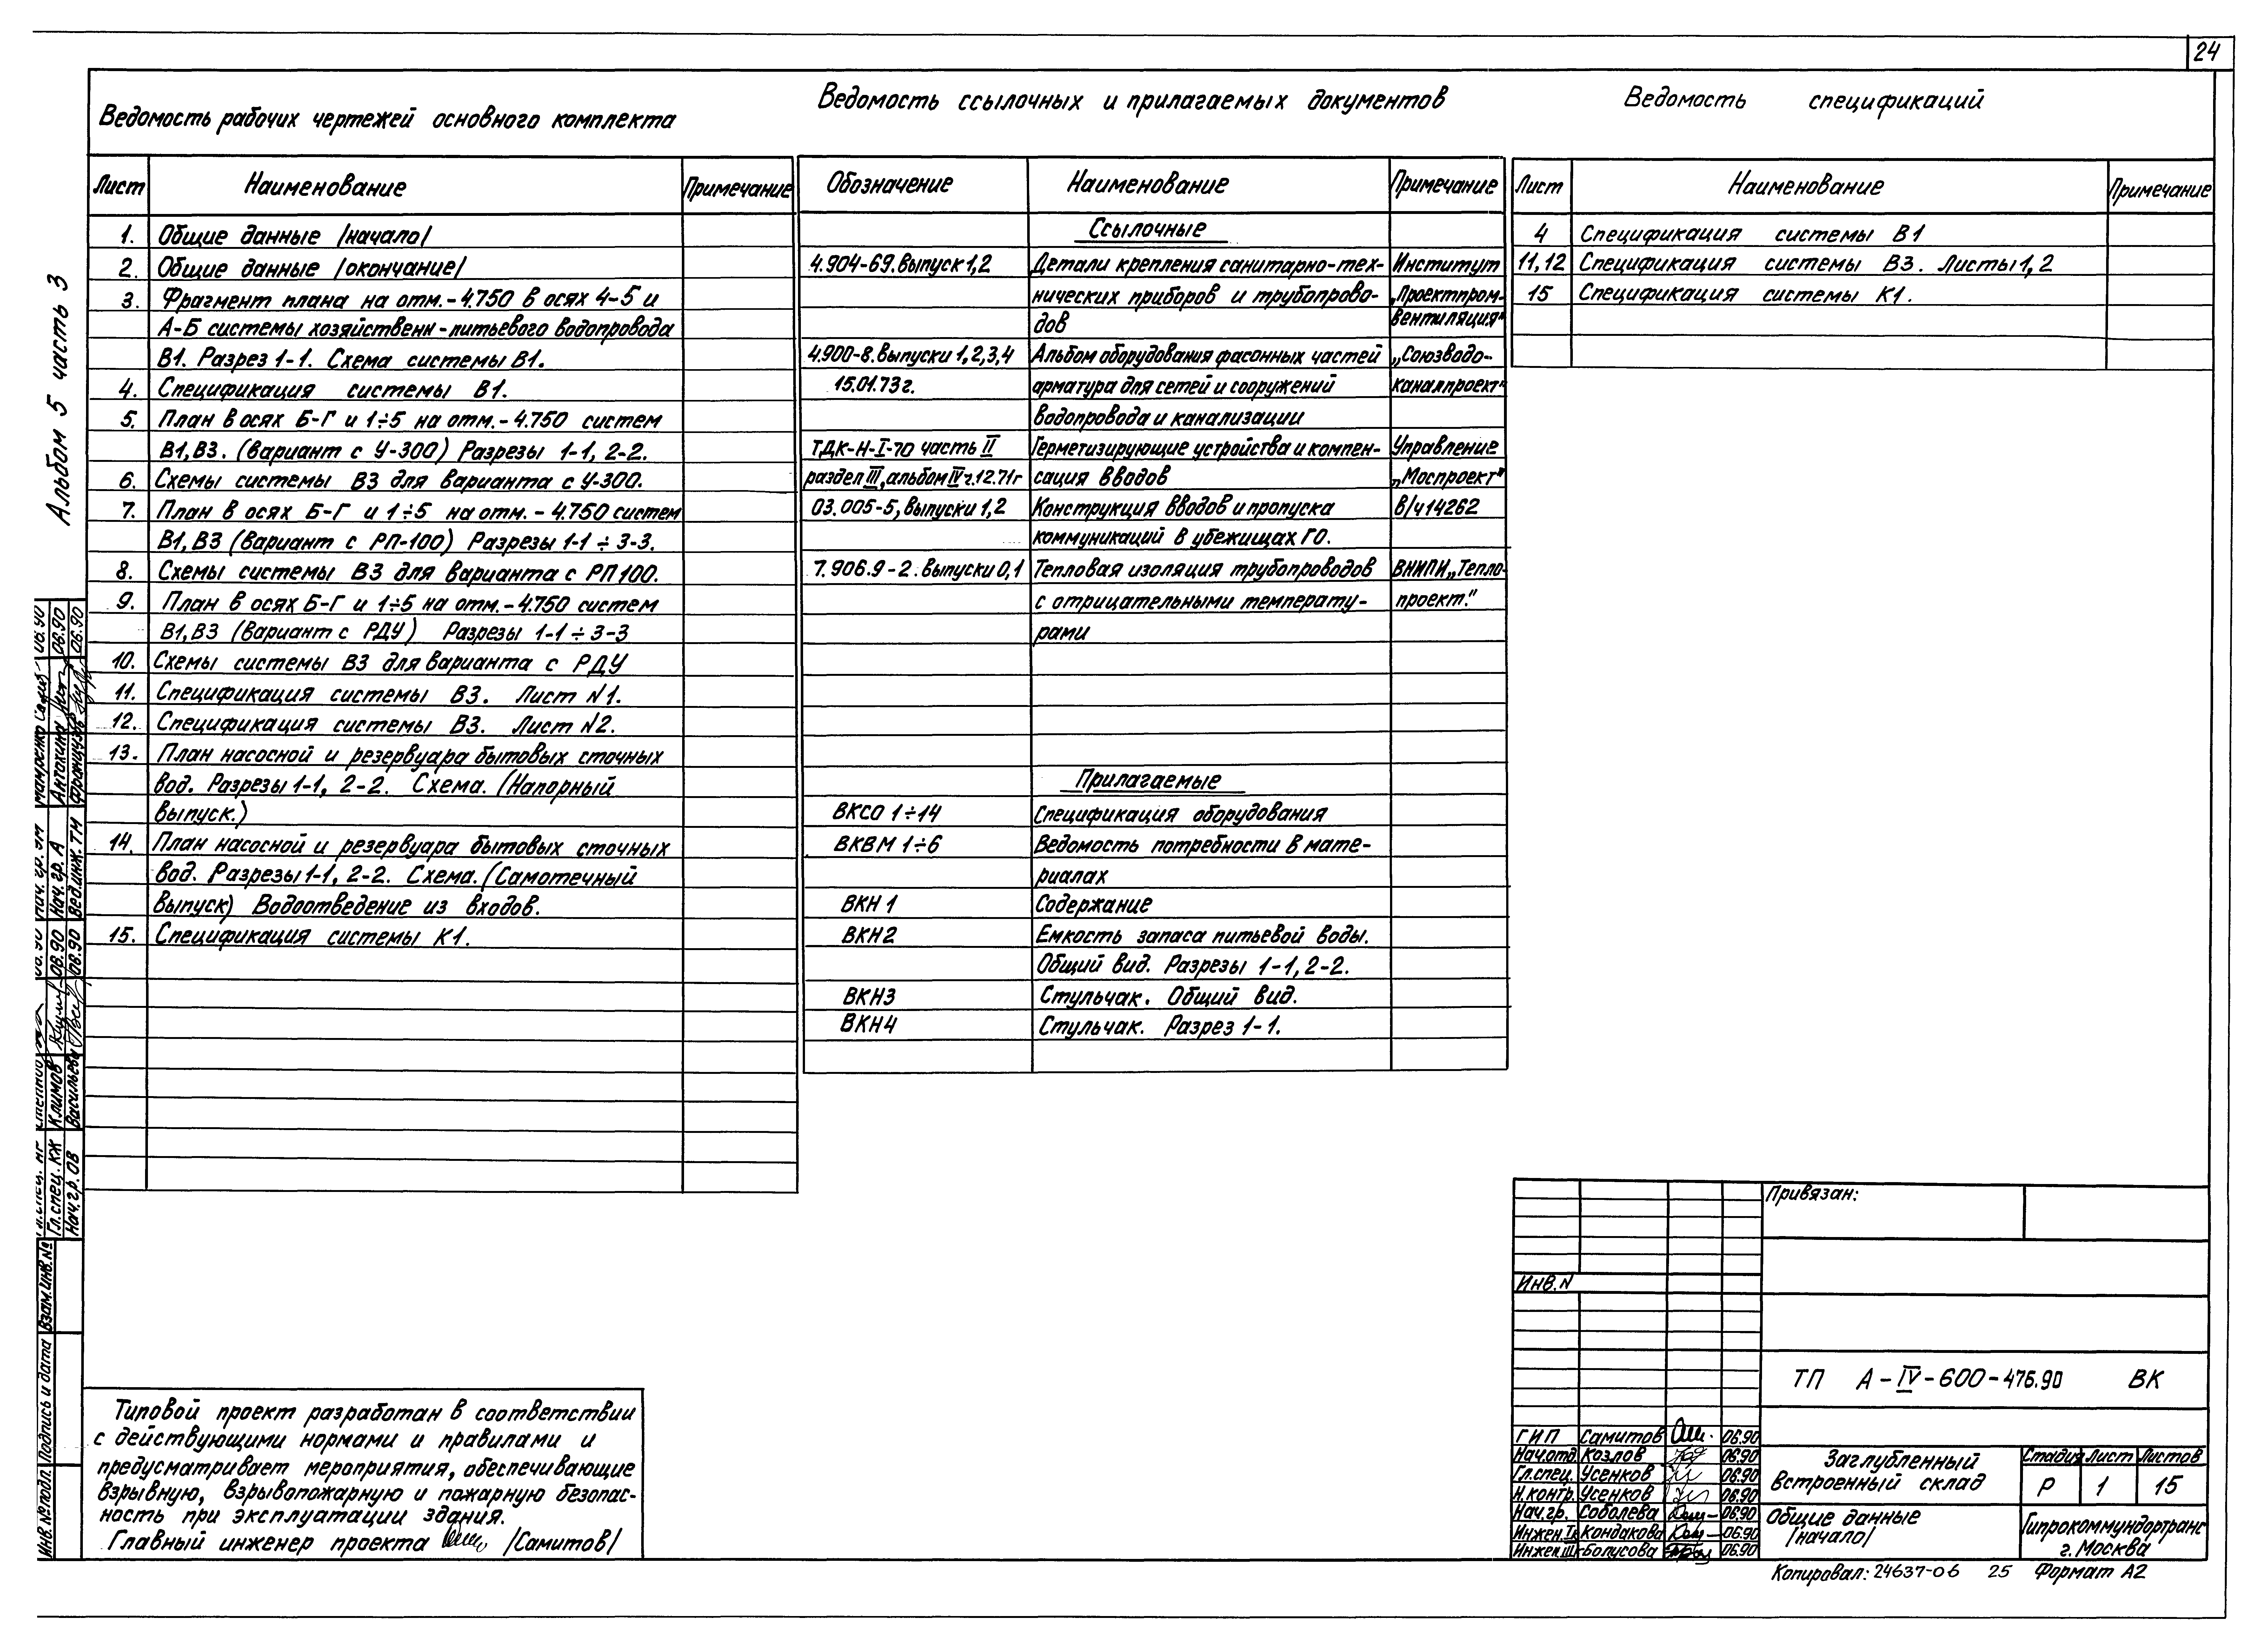 24
Ведомость рабочих чертежей основного комплекта
Лист Наименование Примечание
1. Общие данные /начало/
2. Общие данные /окончание/
3. Фрагмент плана на отм.-4.750 в осях 4-5 и
А-Б системы хозяйственн-питьевого водопровода
В1. Разрез 1-1. Схема системы В1.
4. Спецификация системы В1.
5. План в осях Б-Г и 1÷5 на отм.-4.750 систем
В1,В3. (вариант с У-300) Разрезы 1-1, 2-2.
6. Схемы системы В3 для варианта с У-300.
7. План в осях Б-Г и 1÷5 на отм. - 4.750 систем
В1,В3 (вариант с РП-100) Разрезы 1-1 ÷ 3-3.
8. Схемы системы В3 для варианта с РП100.
9. План в осях Б-Г и 1÷5 на отм.-4.750 систем
В1,В3 (вариант с РДУ) Разрезы 1-1 ÷ 3-3
10. Схемы системы В3 для варианта с РДУ
11. Спецификация системы В3. Лист N1.
12. Спецификация системы В3. Лист N2.
13. План насосной и резервуара бытовых сточных
вод. Разрезы 1-1, 2-2. Схема. (Напорный
выпуск.)
14. План насосной и резервуара бытовых сточных
вод. Разрезы 1-1, 2-2. Схема. (Самотечный
выпуск) Водоотведение из входов.
15. Спецификация системы К1.
Ведомость ссылочных и прилагаемых документов
Обозначение Наименование Примечание
Ссылочные
4.904-69. Выпуск 1,2 Детали крепления санитарно-тех- Институт
нических приборов и трубопрово- „Проектпром-
дов вентиляция"
4.900-8. Выпуски 1,2,3,4 Альбом оборудования фасонных частей „Союзводо-
15.01.73г. арматура для сетей и сооружений каналпроект"
водопровода и канализации
ТДК-Н-I-70 часть II Герметизирующие устройства и компен- Управление
раздел III, альбом IV г.12.71г сация вводов „Моспроект"
03.005-5, Выпуски 1,2 Конструкция вводов и пропуска в/ч14262
коммуникаций в убежищах ГО.
7.906.9-2. Выпуски 0,1 Тепловая изоляция трубопроводов ВНИПИ„Тепло-
с отрицательными температу- проект."
рами
Прилагаемые
ВКСО 1÷14 Спецификация оборудования
ВКВМ 1÷6 Ведомость потребности в мате-
риалах
ВКН 1 Содержание
ВКН2 Емкость запаса питьевой воды.
Общий вид. Разрезы 1-1, 2-2.
ВКН3 Стульчак. Общий вид.
ВКН4 Стульчак. Разрез 1-1.
Ведомость спецификаций
Лист Наименование Примечание
4 Спецификация системы В1
11,12 Спецификация системы В3. Листы 1, 2
15 Спецификация системы К1.
Альбом 5 часть 3
Антохина 06.90
06.90
Нач. гр. А
Вед.инж. ТМ
Климов 08.90
Васильева 08.90
Гл.спец. КЖ
Нач.гр. ОВ
Взам.инв.№
Подпись и дата
Инв.№подл.
Типовой проект разработан в соответствии
с действующими нормами и правилами и
предусматривает мероприятия, обеспечивающие
взрывную, взрывопожарную и пожарную безопас-
ность при эксплуатации здания.
Главный инженер проекта /Самитов/
Привязан:
Инв.N
ТП А-IV-600-476.90 ВК
ГИП Самитов 06.90
Нач.отд. Козлов 06.90
Гл.спец. Усенков 06.90
Н.контр. Усенков 06.90
Нач.гр. Соболева 06.90
Инжен.Iк Кондакова 06.90
Инжен.IIIк Болусова 06.90
Заглубленный
встроенный склад
Стадия Лист Листов
Р 1 15
Общие данные
/начало/
Гипрокоммундортранс
г. Москва
Копировал: 24637-06 25 Формат А2